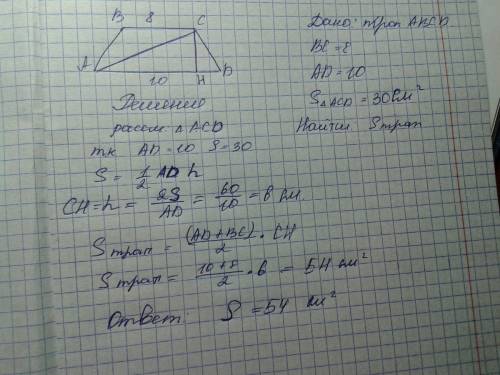 B 8 C
A 10 H D
Дано: трап ABCD
BC = 8
AD = 10
S△ACD = 30 см²
Найти Sтрап
Решение
рассм △ ACD
тк AD = 10 S = 30
S = 1/2 AD h
CH = h = 2S/AD = 60/10 = 6 см.
Sтрап = (AD+BC)/2 · CH
Sтрап = 10+8/2 · 6 = 54 см²
Ответ: S = 54 см²